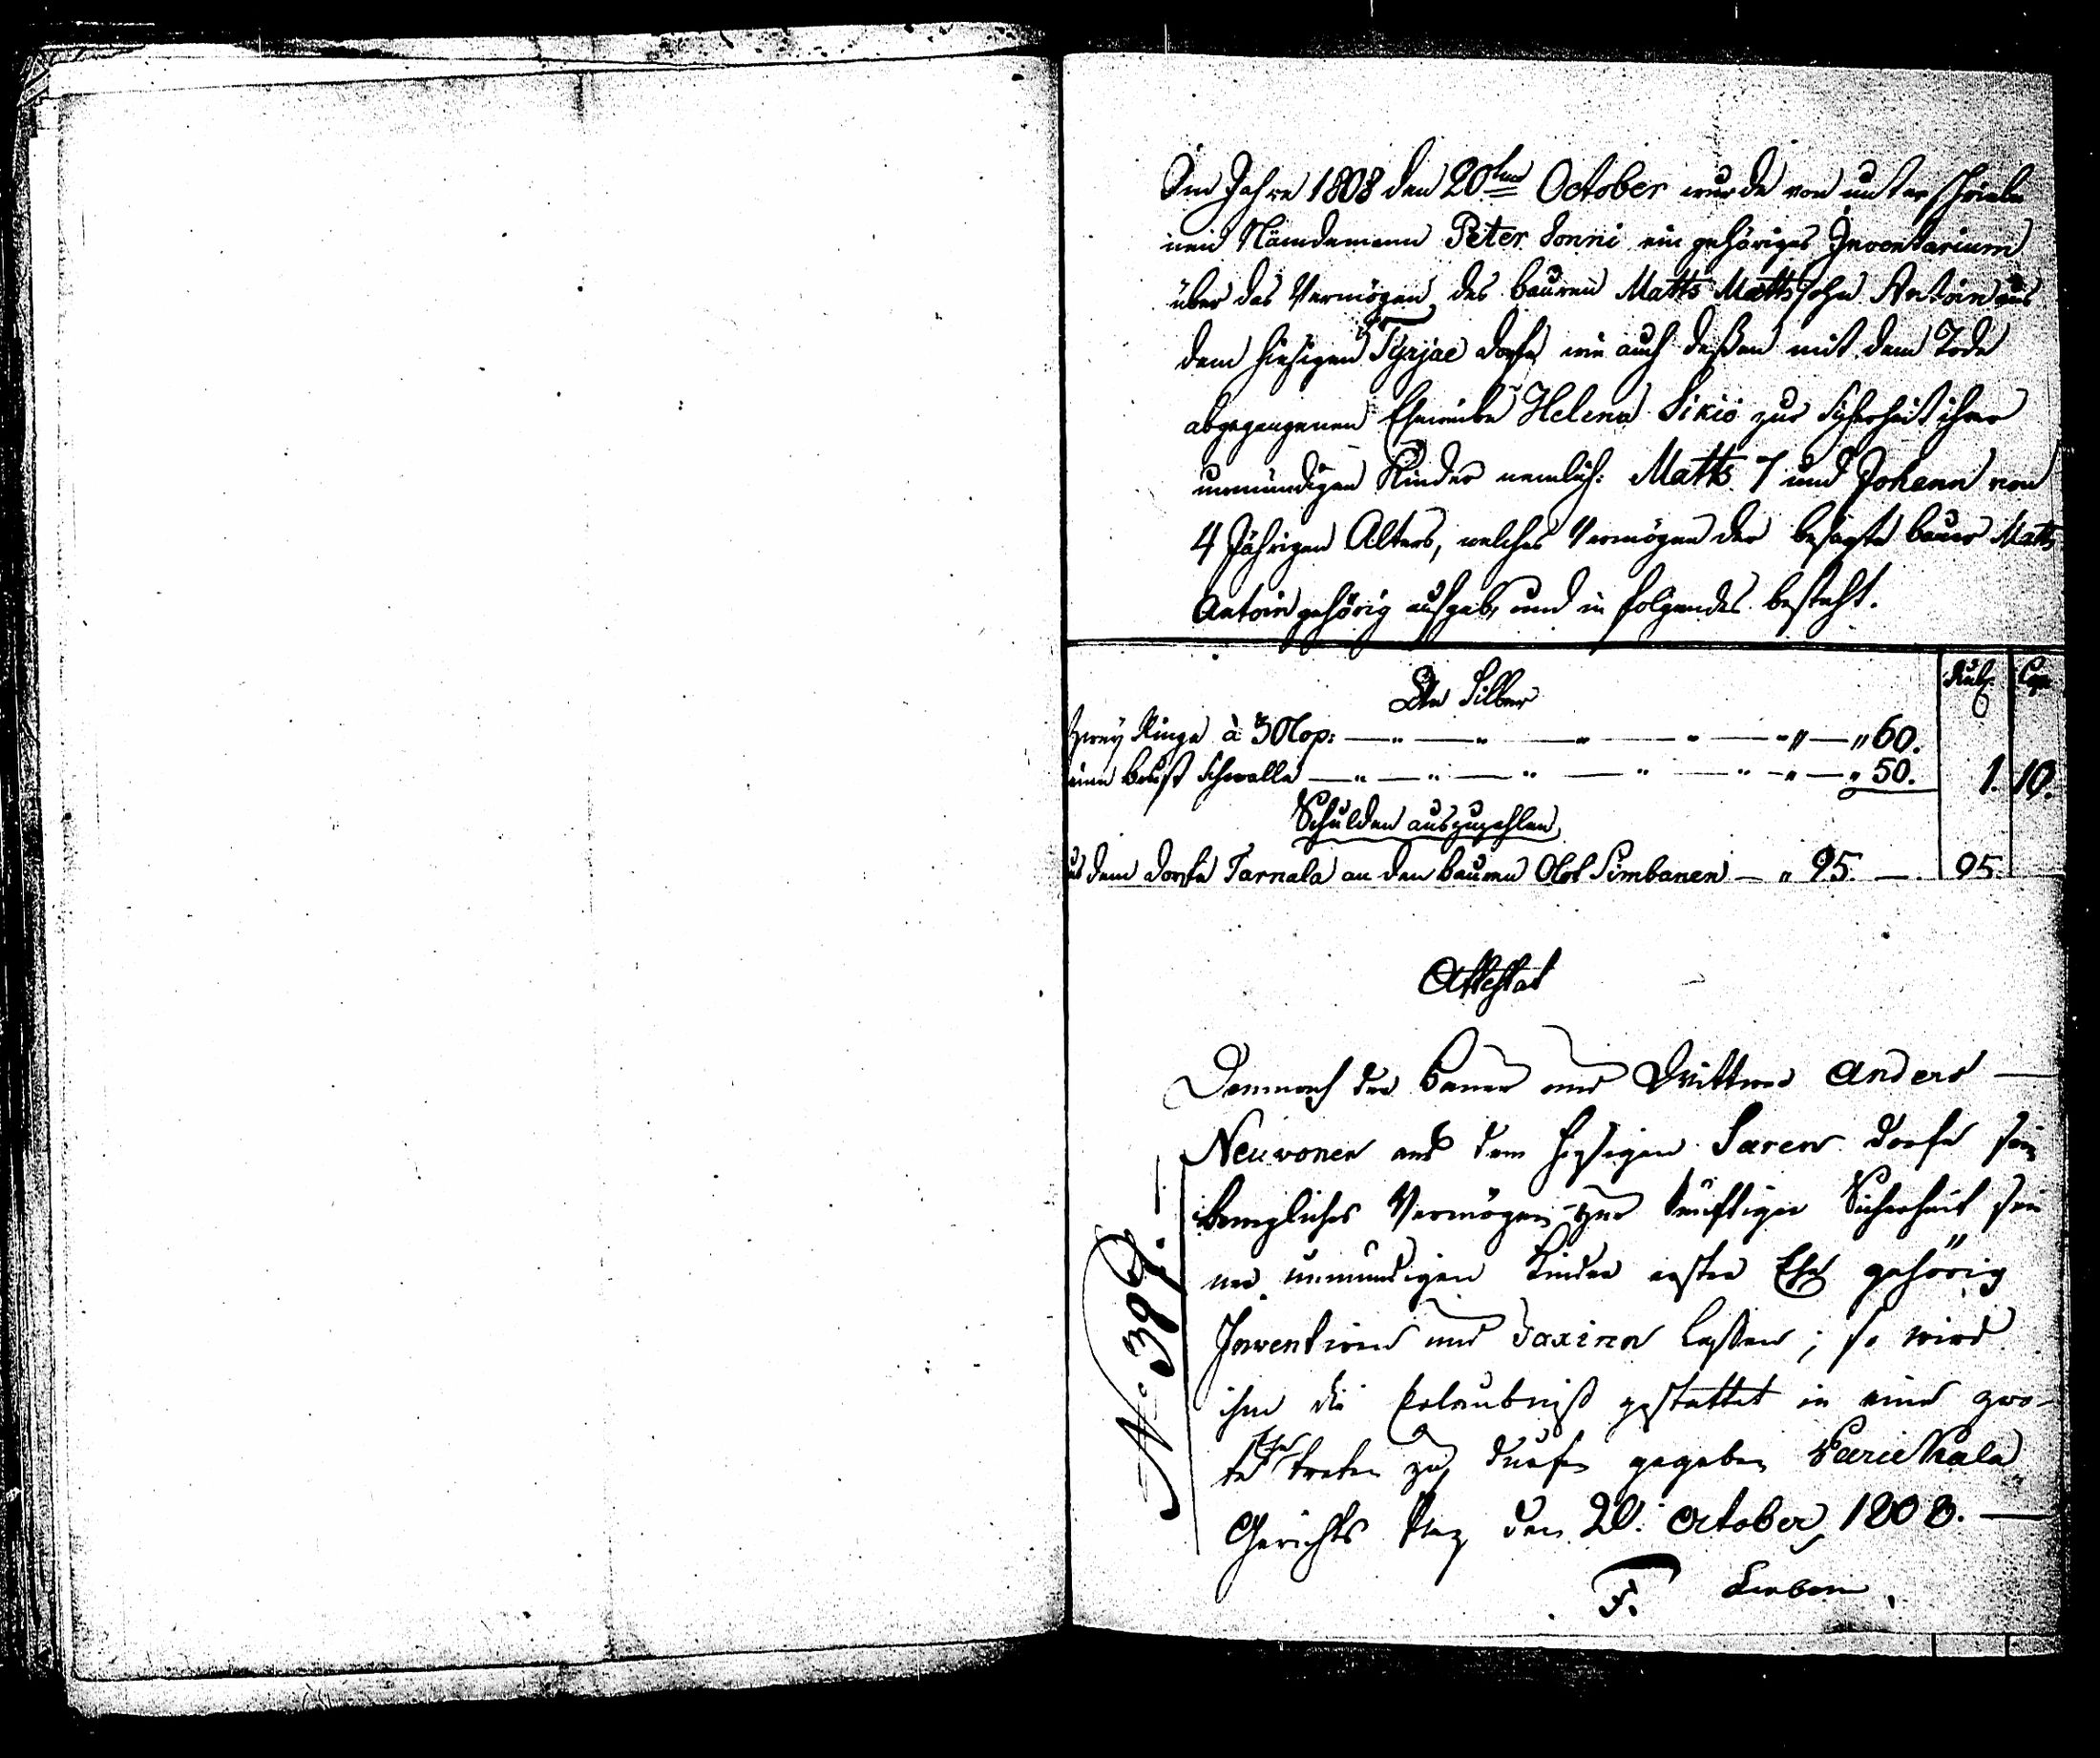 Im Jahre 1808 den 20ten October wurde von unterschriebe
nen Nämdemann Peter Sonni ein gehöriges Inventarium
über das Vermögen des bauren Matts Mattssohn Antoin aus
dem hiesigen Tyrjae dorfe wie auch deßen mit dem Tode
abgegangenen Eheweibe Helena Sikiö zur Sicherheit ihrer
unmündigen Kinder nemlich: Matts 7 und Johann von
4 Jährigen Alters, welches Vermögen der besagte bauer Matts
Antoin gehörig aufgab, und in folgendes besteht.
Rub. Cop.
An Silber
Zwey Ringe à 30 Cop: — " — " — " — " — " — " 60.
eine brust Schnalle — " — " — " — " — " — " 50. 1. 10.
Schulden auszuzahlen
aus dem dorfe Tarnala an den bauren Olof Simbanen — " 95. — . 95.
Attestat
Demnach der bauer und Wittwer Anders —
Neuvonen aus dem hiesigen Saren dorfe sein
bewegliches Vermögen zur künftigen Sicherheit sei
ner unmündigen Kinder erster Ehe gehörig
Inventiren und Taxiren laßen; so wird
ihm die Erlaubniß gestattet in eine zwo-
te Ehe treten zu durfen gegeben Parickala
Gerichts Ting den 20. October 1808. —
No. 387. —
F.